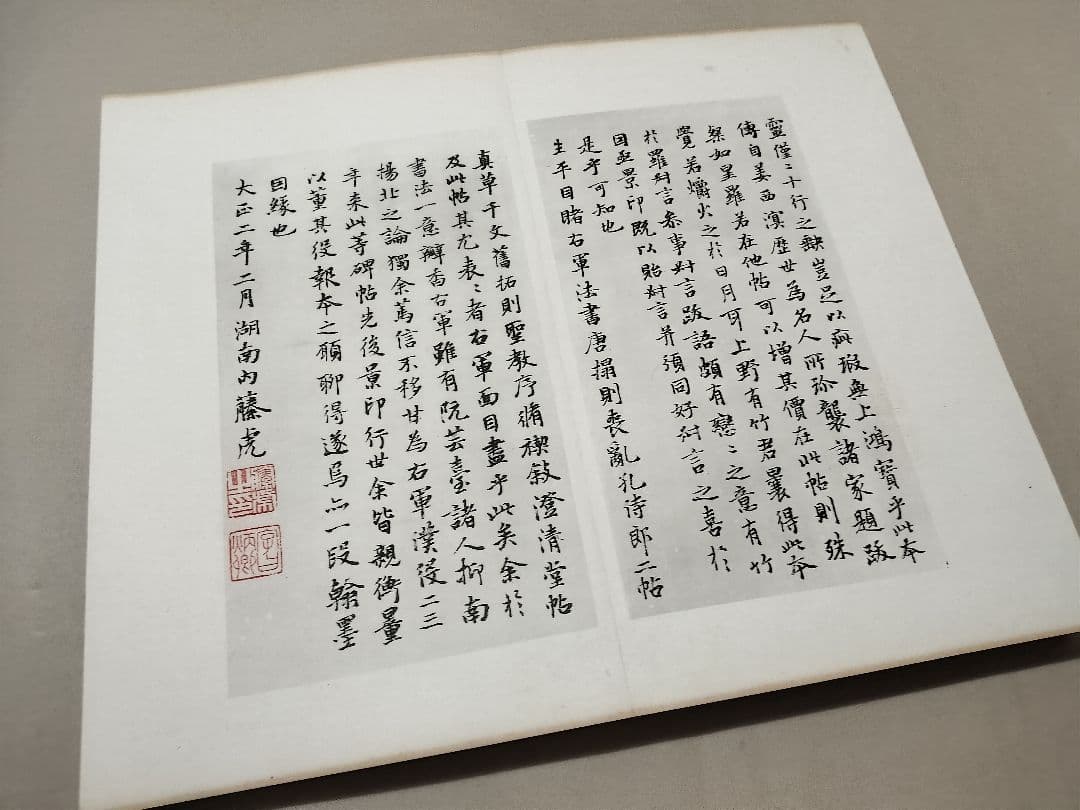 靈僅二十行之缺豈足以疵瑕無上鴻寶乎此本
傳自姜西溟歷世為名人所珍襲諸家題跋
粲如星羅若在他帖可以增其價在此帖則殊
覺若爝火之於日月耳上野有竹君曩得此本
於羅尗言叅事尗言跋語頗有戀〻之意有竹
因亟景印既以貽尗言并須同好尗言之喜於
是乎可知也
生平目睹右軍法書唐搨則喪亂孔侍郎二帖
真草千文舊拓則聖教序脩禊敍澄清堂帖
及此帖其尤表〻者右軍面目盡乎此矣余於
書法一意瓣香右軍雖有阮芸臺諸人抑南
揚北之論獨余篤信不移甘為右軍濮役二三
年來此等碑帖先後景印行世余皆親衡量
以董其役報本之願聊得遂焉亦一段翰墨
因緣也
大正二年二月湖南內藤虎
炳卿